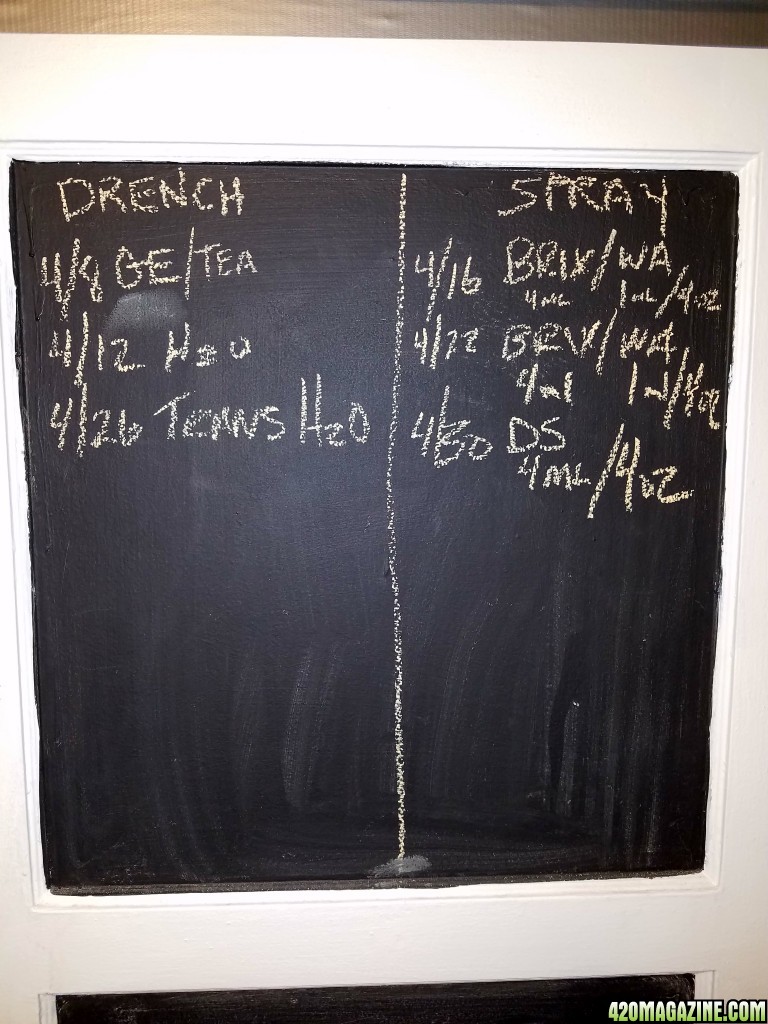 DRENCH
4/8 GE/TEA
4/12 H2O
4/26 H2O
SPRAY
4/16 BRIX/WA
4ML 1ML/4OZ
4/22 BRX/WA
4ml 1ml/4oz
4/30 DS
4ML/4OZ
420MAGAZINE.COM